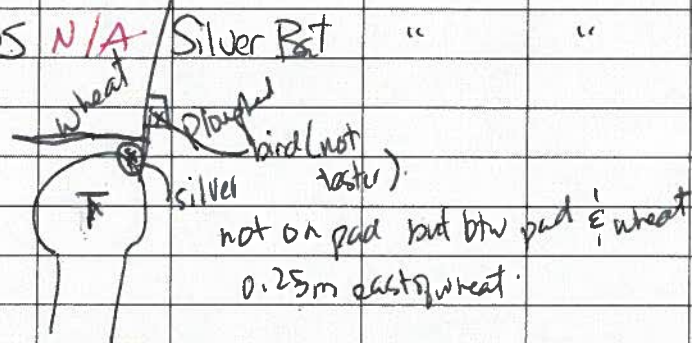 5 N/A Silver Bat " "
wheat
ploughed
bird (not
bats).
silver
not on pad but btw pad & wheat
0.25m east of wheat.